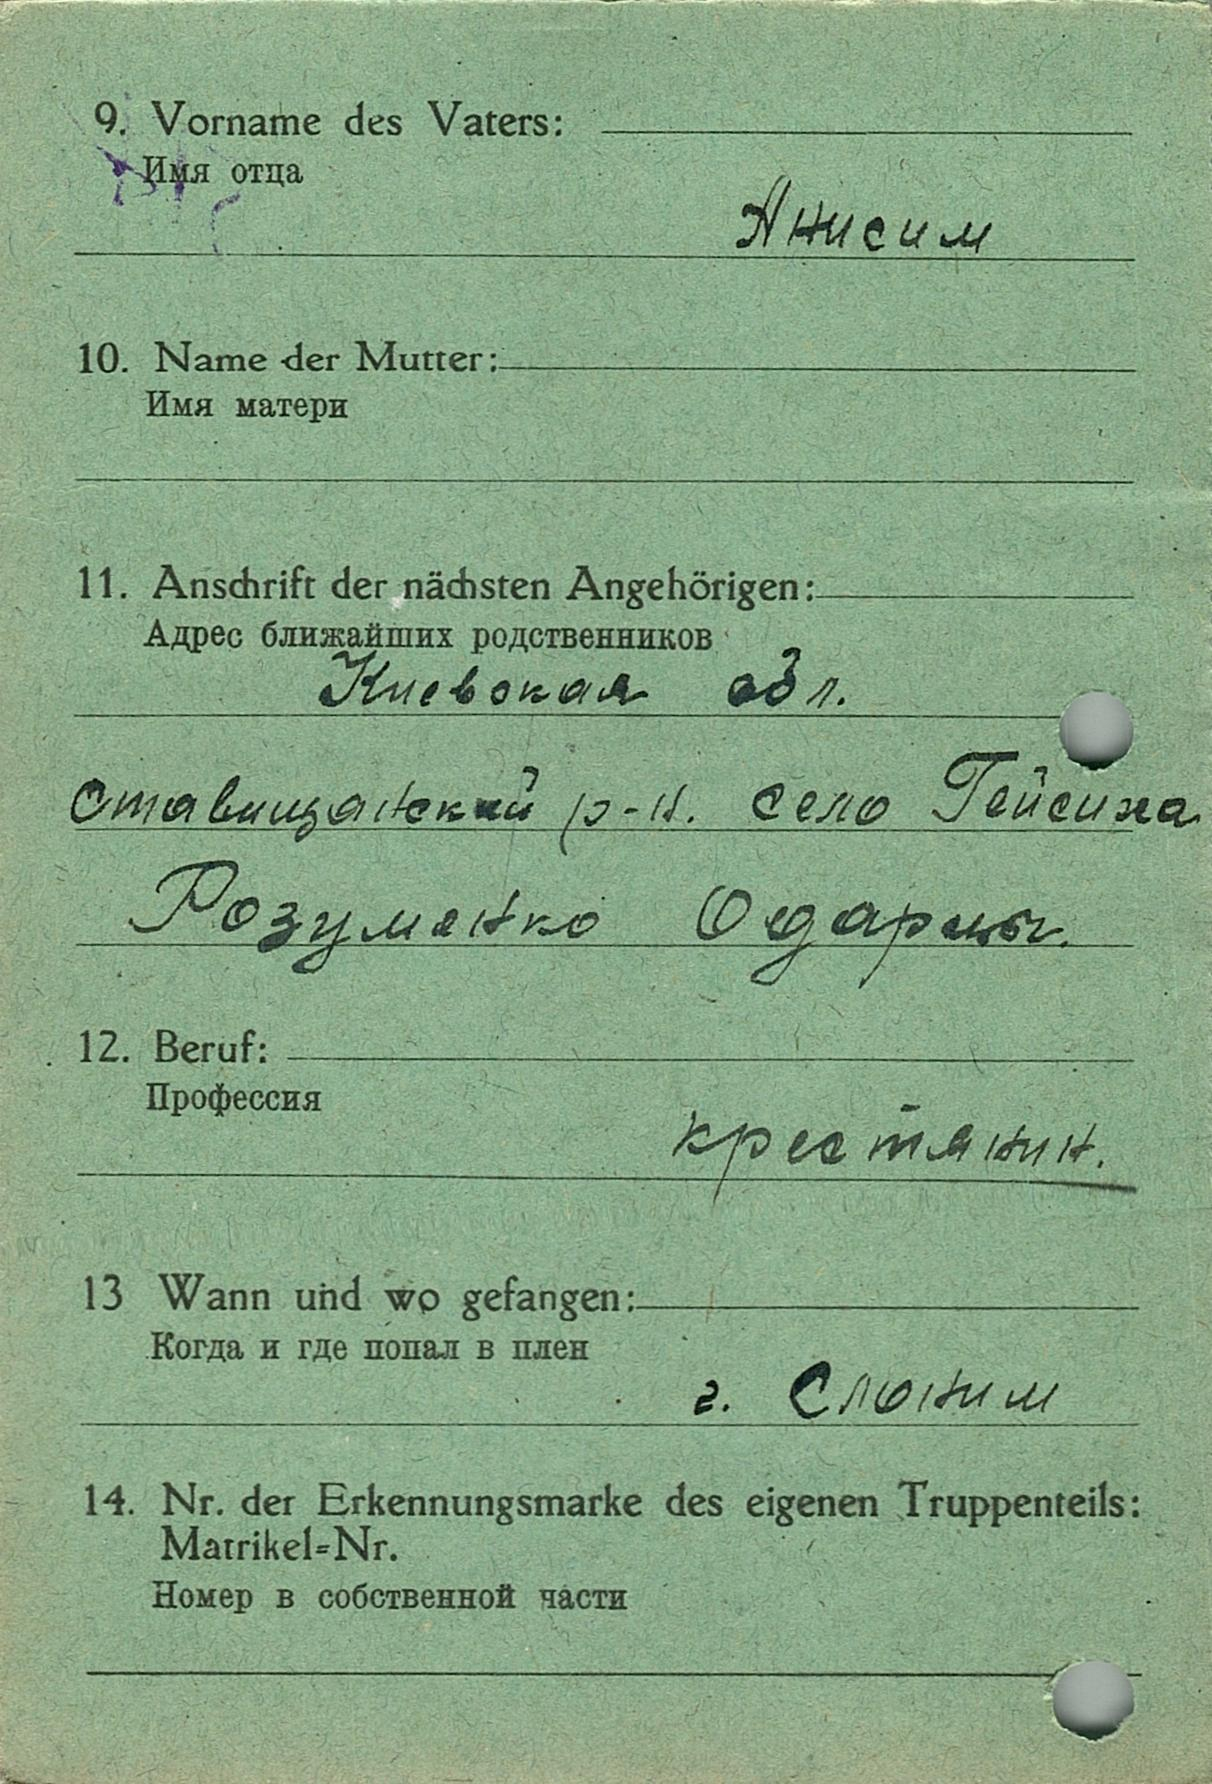 9. Vorname des Vaters:
Имя отца
Анисим
10. Name der Mutter:
Имя матери
11. Anschrift der nächsten Angehörigen:
Адрес ближайших родственников
Киевская обл.
Ставищанский р-н. село Гейсиха
Розуменко Одарцы.
12. Beruf:
Профессия
крестянин.
13 Wann und wo gefangen:
Когда и где попал в плен
г. Слоним
14. Nr. der Erkennungsmarke des eigenen Truppenteils:
Matrikel=Nr.
Номер в собственной части